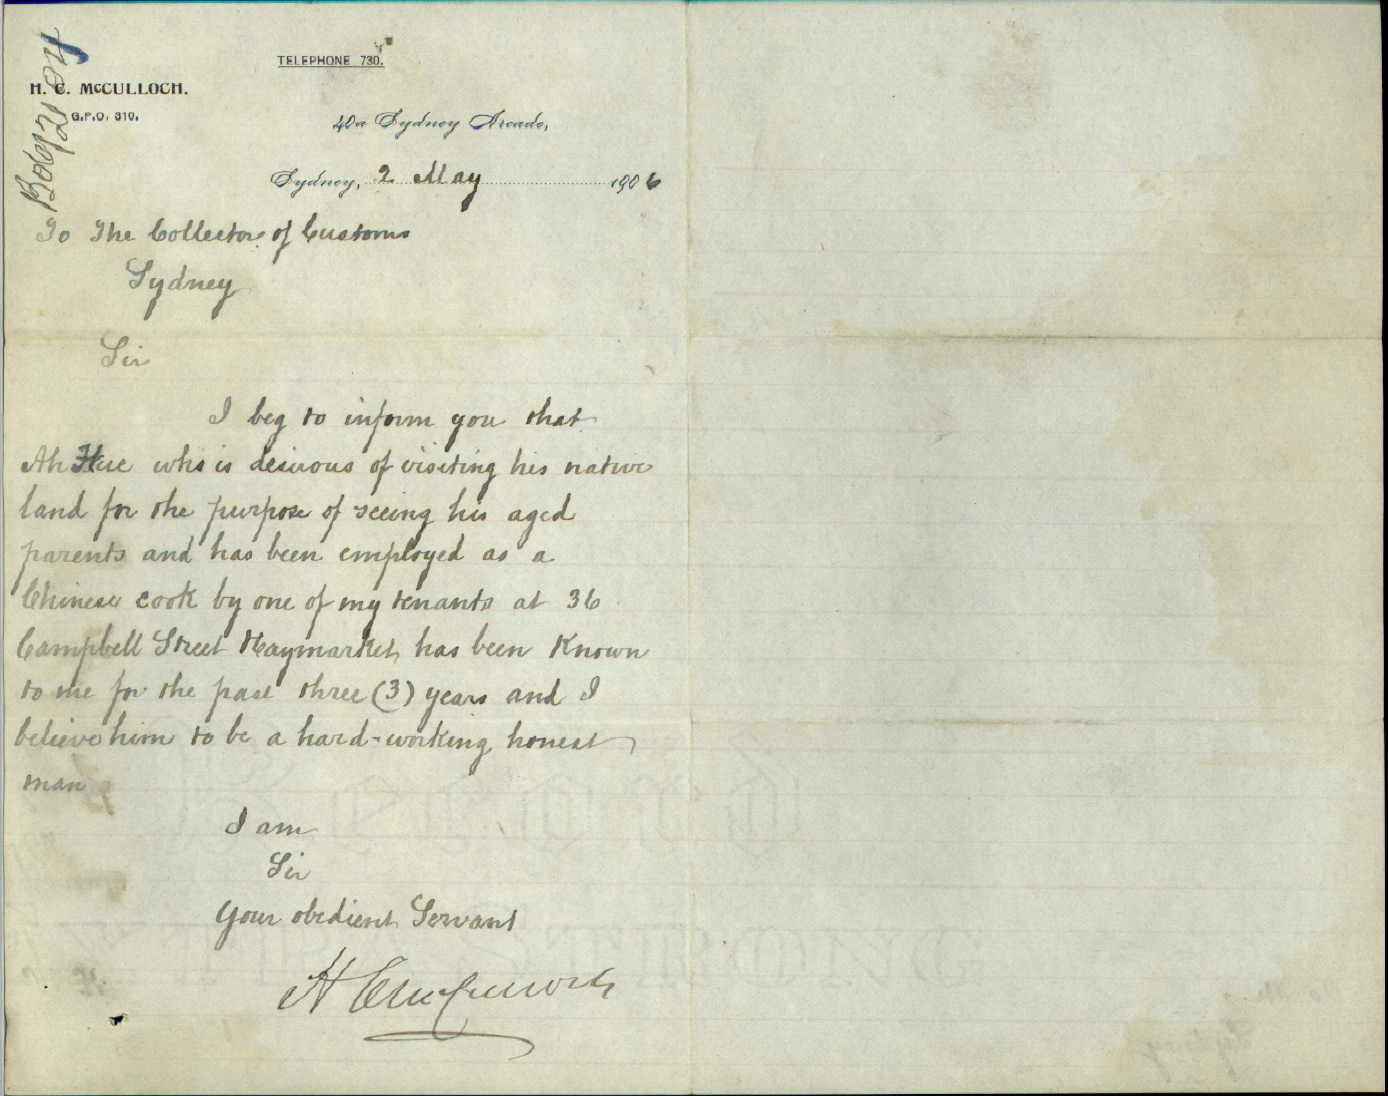 TELEPHONE 730.
H. C. McCULLOCH.
G.P.O. 310.
40a Sydney Arcade,
Sydney, 2 May 1906
To The Collector of Customs
Sydney
Sir
I beg to inform you that
Ah Hue who is desirous of visiting his native
land for the purpose of seeing his aged
parents and has been employed as a
Chinese cook by one of my tenants at 36
Campbell Street Haymarket, has been known
to me for the past three (3) years and I
believe him to be a hard-working honest
man
I am
Sir
Your obedient Servant
H C McCulloch